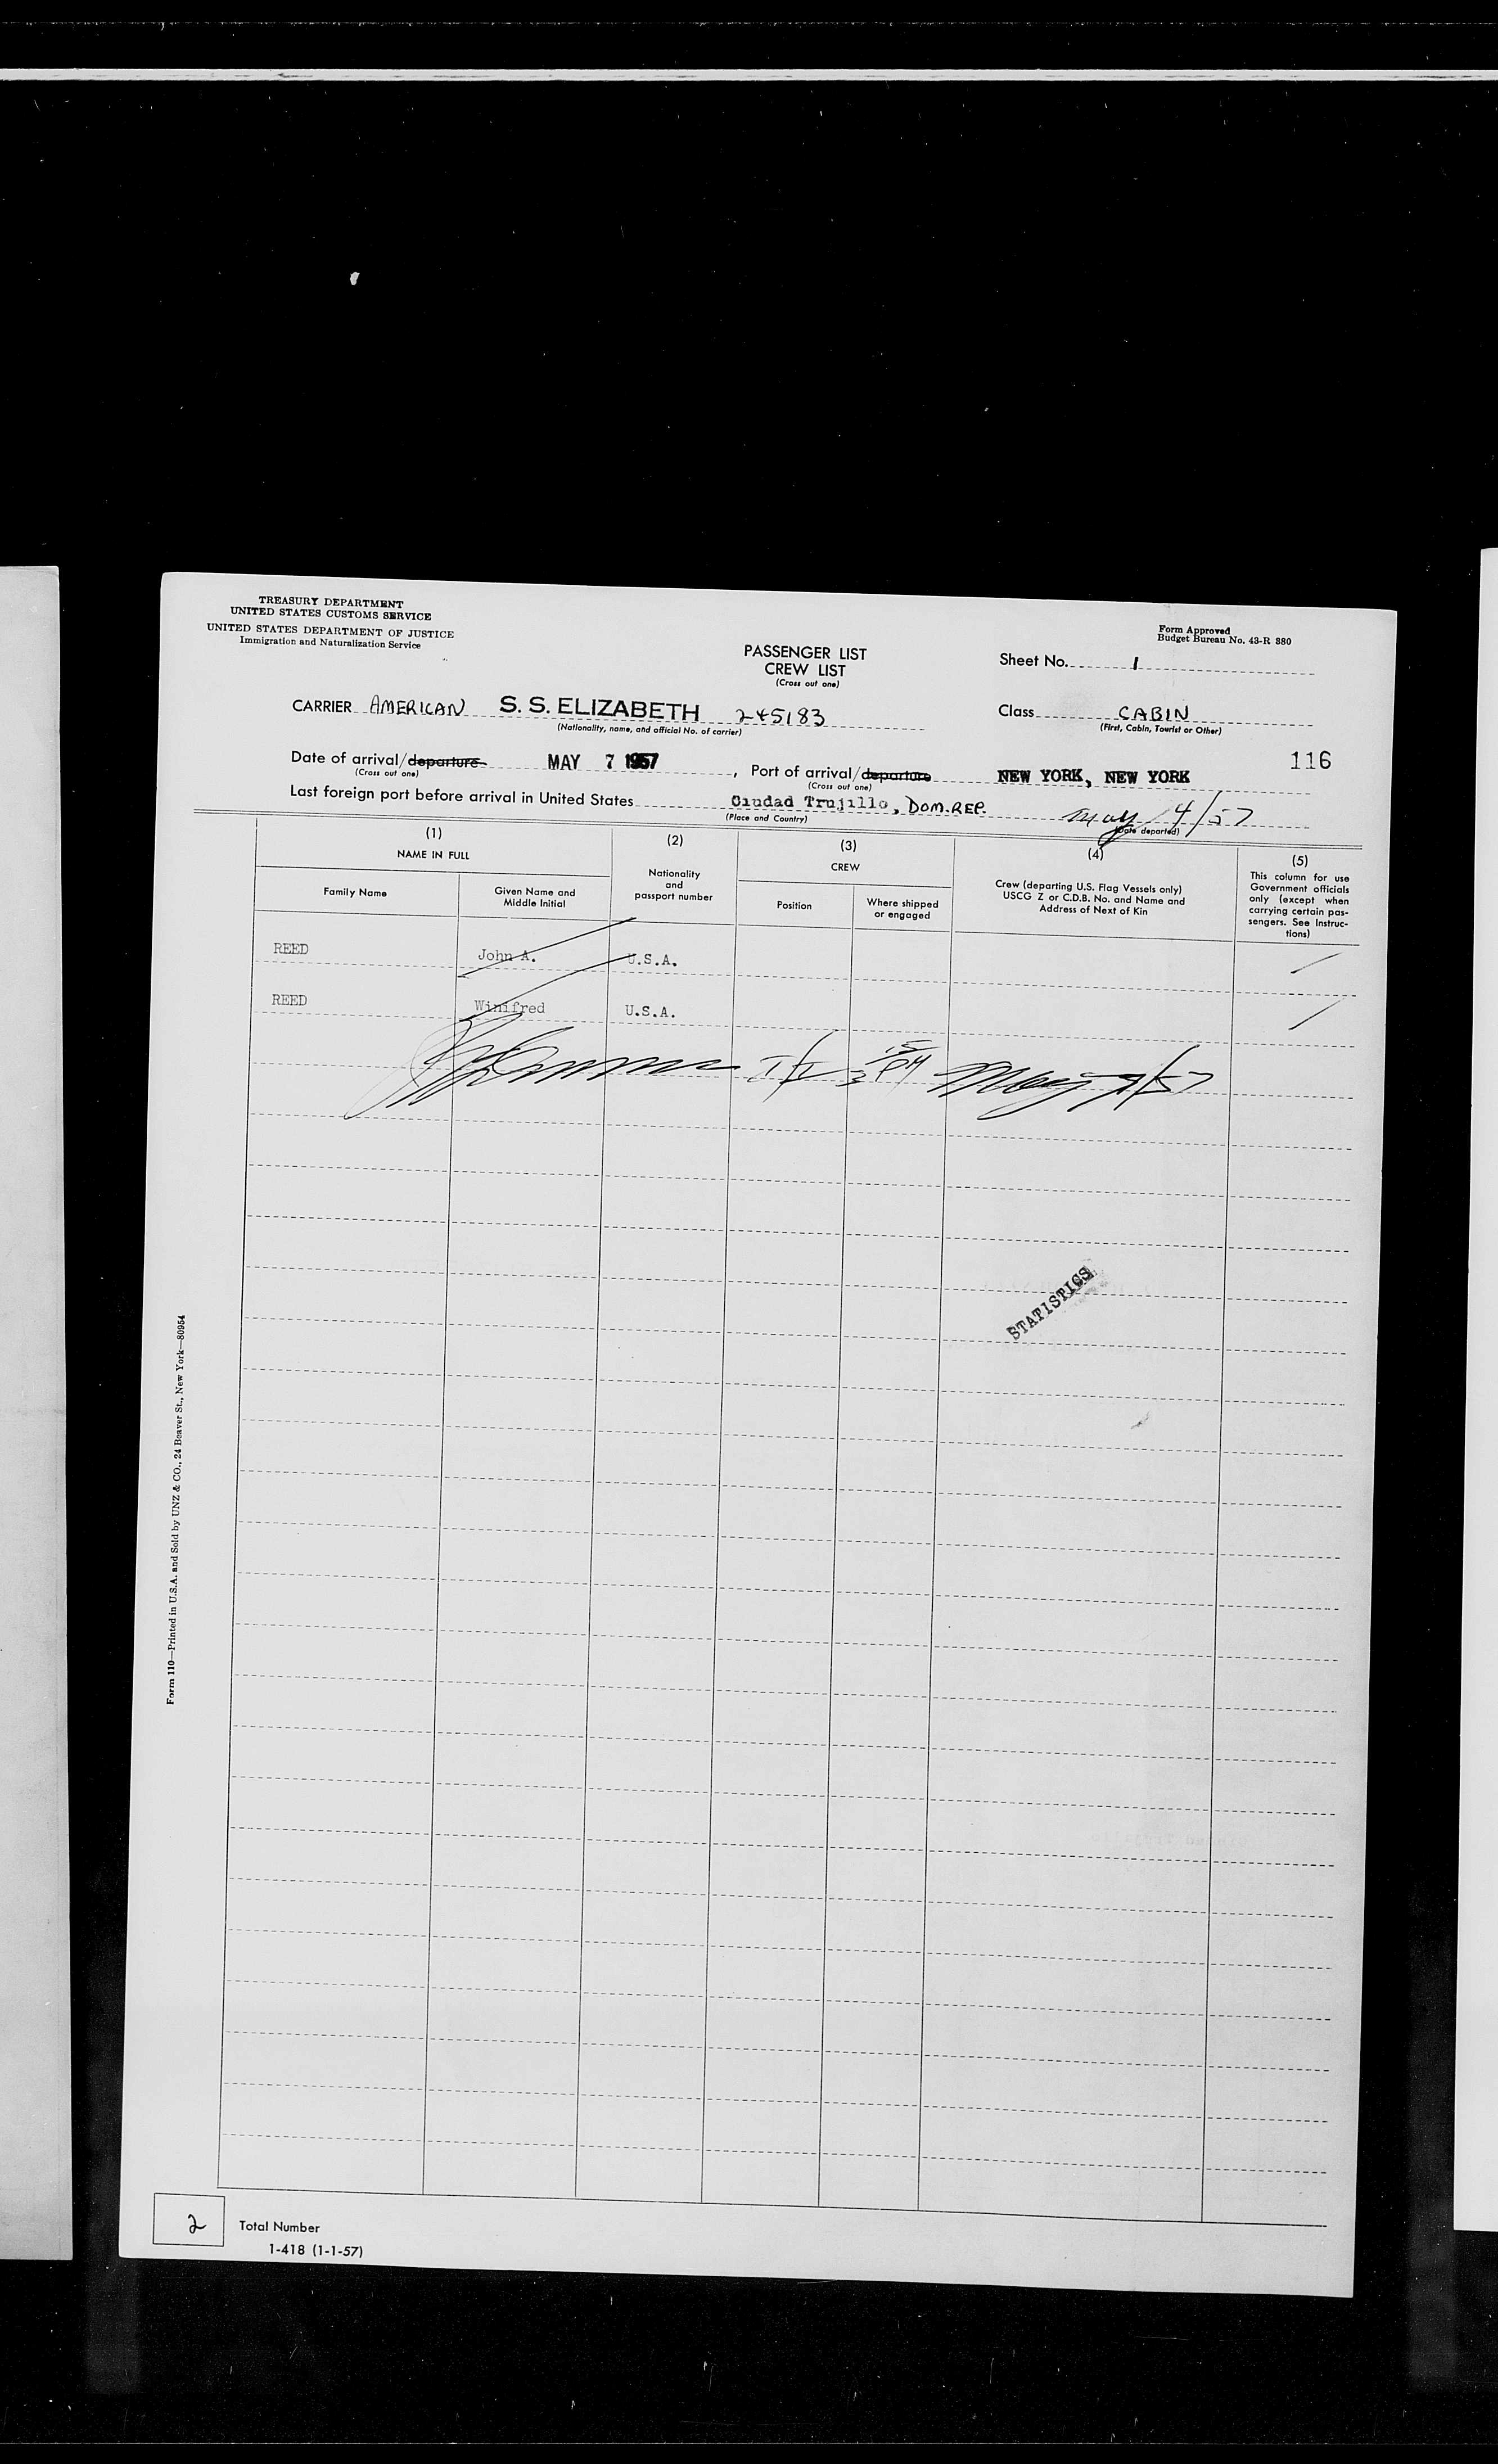 TREASURY DEPARTMENT
UNITED STATES CUSTOMS SERVICE
UNITED STATES DEPARTMENT OF JUSTICE
Immigration and Naturalization Service
Form Approved
Budget Bureau No. 43-R 380
PASSENGER LIST
CREW LIST
(Cross out one)
Sheet No. 1
CARRIER AMERICAN S. S. ELIZABETH 245183
(Nationality, name, and official No. of carrier)
Class CABIN
(First, Cabin, Tourist or Other)
116
Date of arrival/departure MAY 7 1957, Port of arrival/departure NEW YORK, NEW YORK
(Cross out one) (Cross out one)
Last foreign port before arrival in United States Ciudad Trujillo, DOM. REP. May 4/57
(Place and Country) (Date departed)
(1)
NAME IN FULL
Family Name
Given Name and
Middle Initial
(2)
Nationality
and
passport number
(3)
CREW
Position
Where shipped
or engaged
(4)
Crew (departing U.S. Flag Vessels only)
USCG Z or C.D.B. No. and Name and
Address of Next of Kin
(5)
This column for use
Government officials
only (except when
carrying certain pas-
sengers. See Instruc-
tions)
REED John A. U.S.A.
REED Winifred U.S.A.
May 7/57
STATISTICS
Form 110—Printed in U.S.A. and Sold by UNZ & CO., 24 Beaver St., New York—80954
2 Total Number
1-418 (1-1-57)